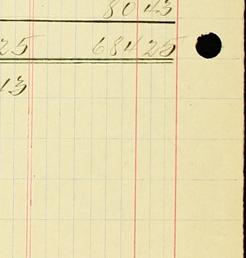 80 43
25 684 25
13